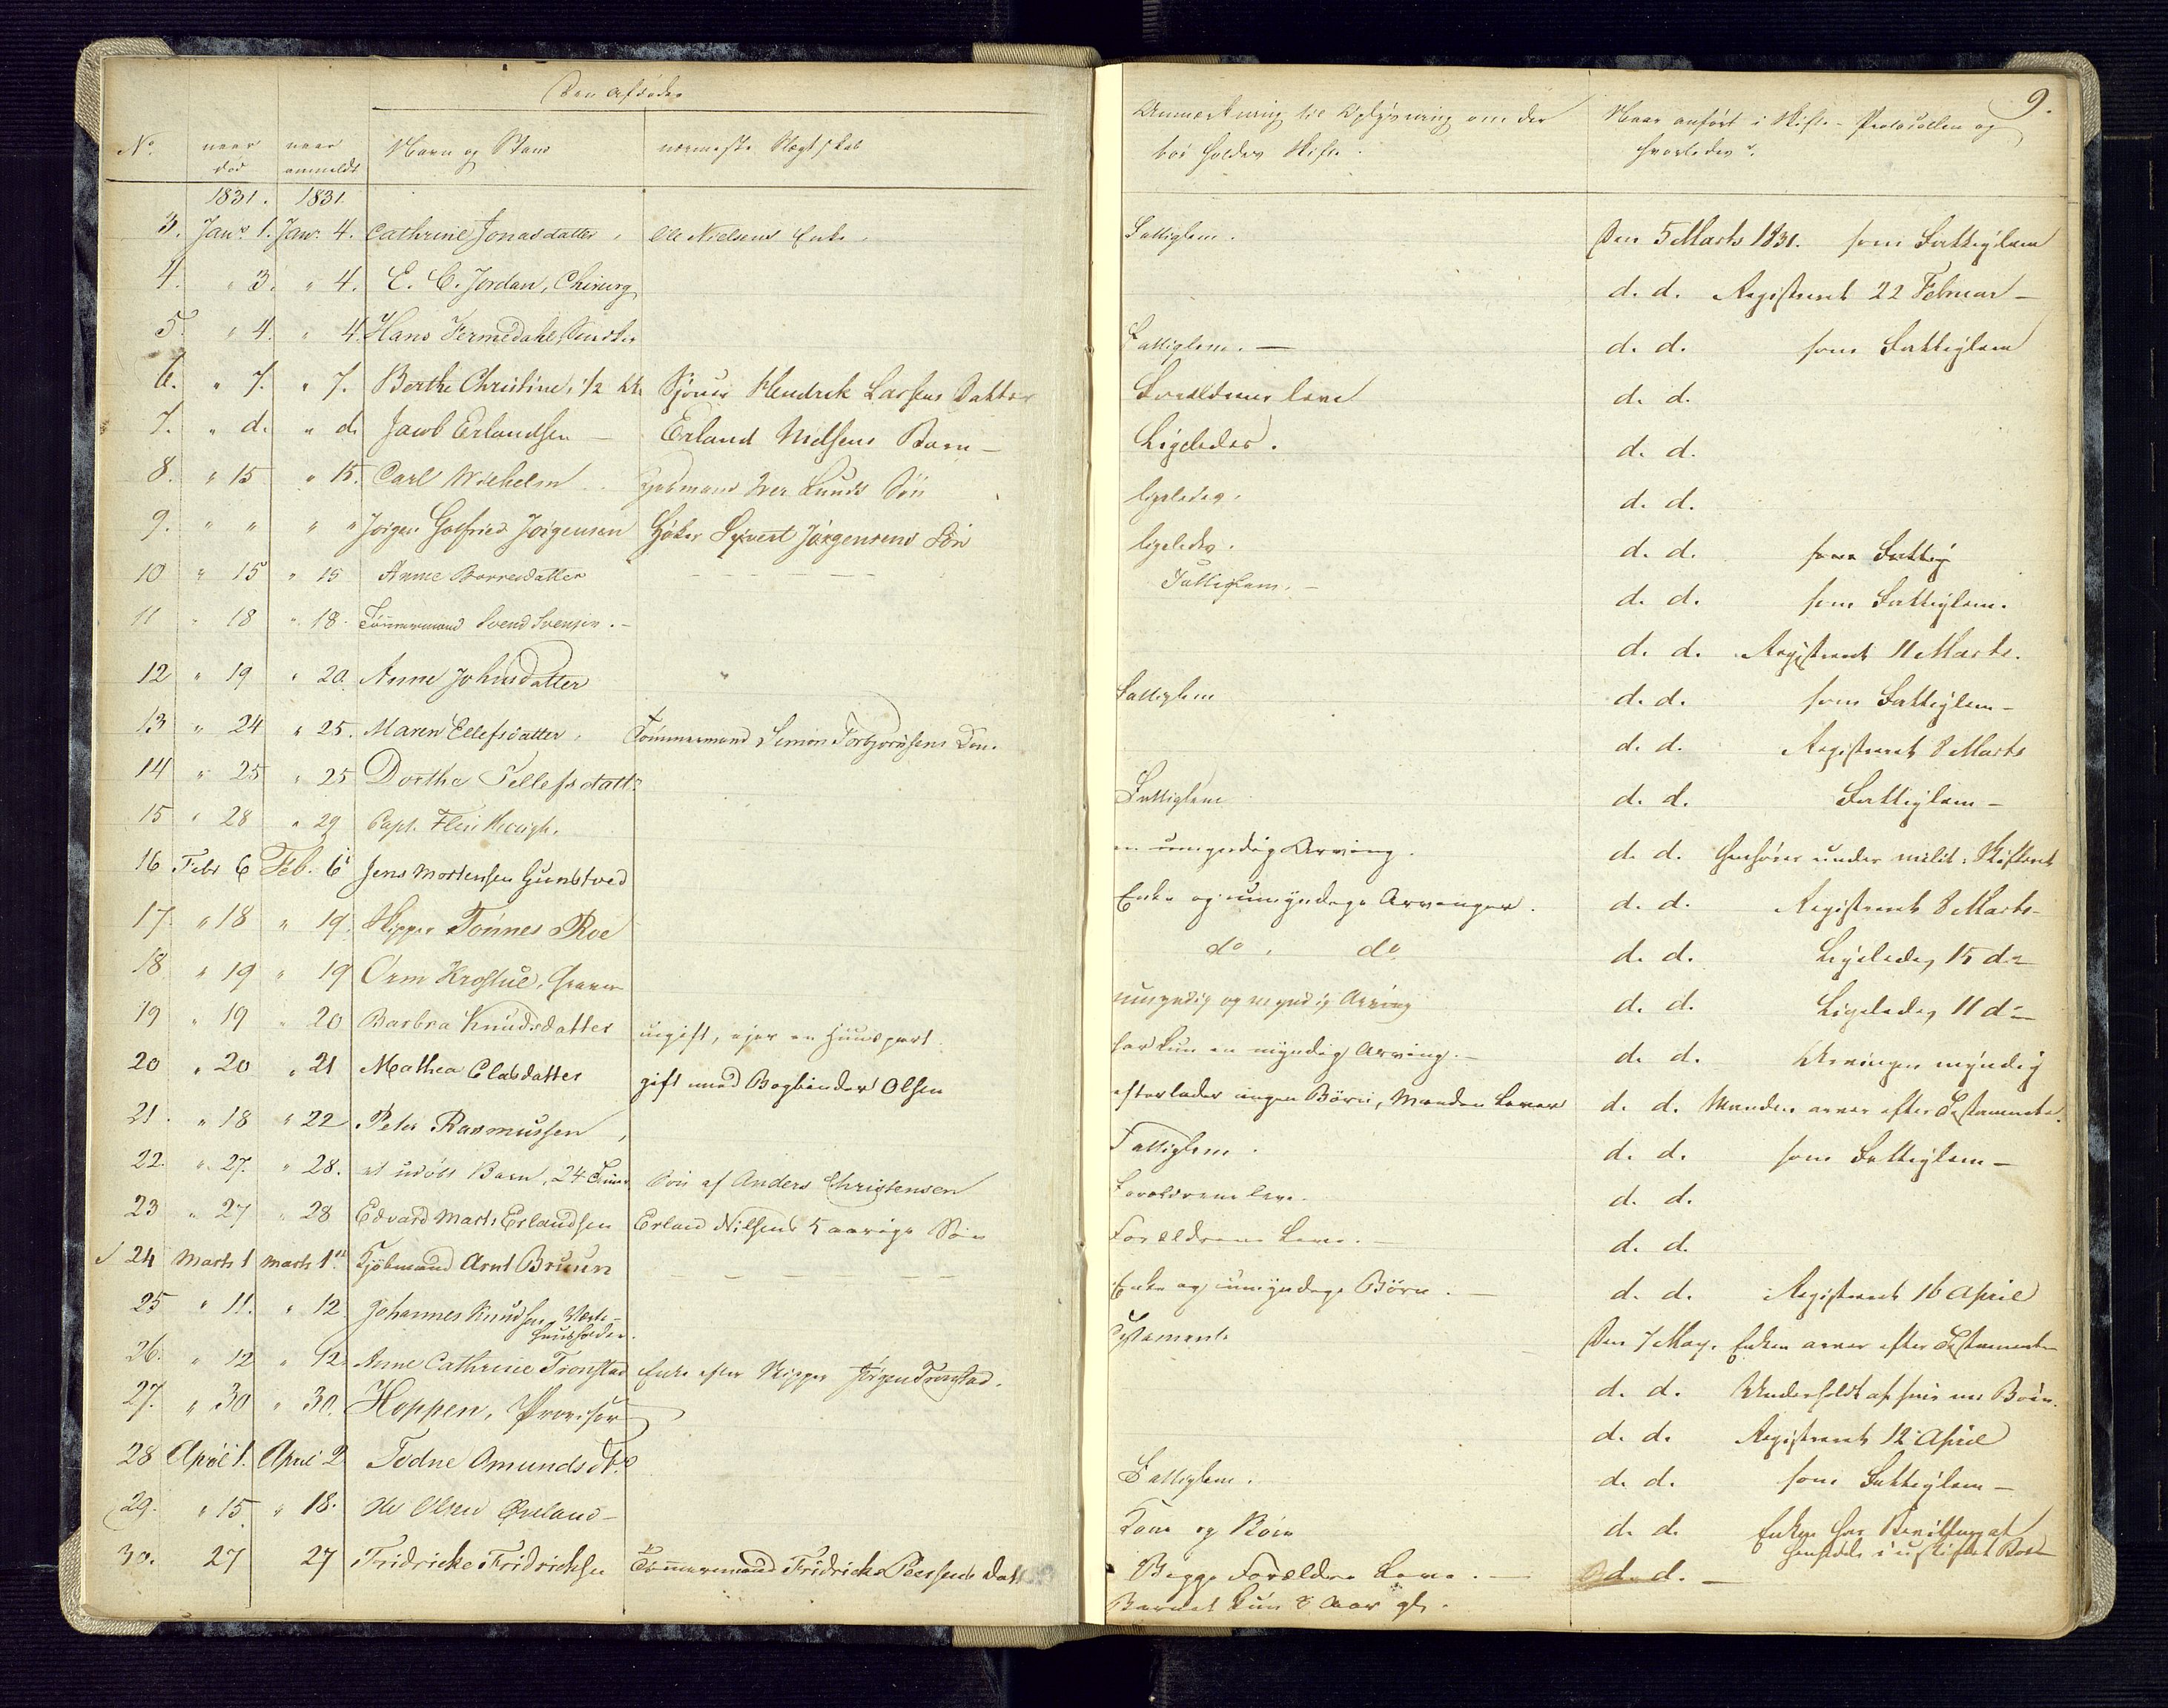 9.
Den Afdødes
No. naar død naar anmeldt Navn og Stand nærmeste Slægtskab Anmærkning til Oplysning om der bør holdes Skifte. Naar anført i Skifte-Protocollen og hvorledes.
1831. 1831.
3. Janr. 1. Janr. 4. Cathrine Jonasdatter, Ole Nielsens Enke. Fattiglem. Den 5 Marts 1831. som Fattiglem
4. " 3. " 4. E. C. Jordan, Chirurg d. d. Registreret 22 Februar -
5. " 4. " 4. Hans Fermedahl, Fattiglem. - d. d. som Fattiglem
6. " 7. " 7. Berthe Christine, 1/2 Sjøm Hendrik Larsens Datter Forældrene leve d. d.
7. " d. " d. Jacob Erlandsen - Erland Nielsens Barn - Ligeledes. d. d.
8. " 15 " 15. Carl Wilhelm Kjøbmand Iver Lunds Søn ligeledes. d. d.
9. " " " " Jørgen Gotfried Jørgensen Høker Syvert Jørgensens Søn ligeledes. d. d. som Fattig
10 " 15 " 15 Anne Borresdatter - - - - - Fattiglem. - d. d. som Fattiglem.
11 " 18 " 18. Tømmermand Svend Svensen. - d. d. Registreret 11 Marts.
12 " 19 " 20. Anne Johnsdatter Fattiglem d. d. som Fattiglem -
13 " 24 " 25. Maren Ellefsdatter, Tømmermand Simon Torbjørnsens Kone. d. d. Registreret 8 Marts
14 " 25 " 25 Dorthe Tellefsdattr Fattiglem d. d. Fattiglem -
15 " 28 " 29 Capt. en umyndig Arving. d. d. henhører under milit: Skifteret
16 Febr 6 Feb. 6 Jens Mortensen Gunstved Enke og umyndige Arvinger. d. d. Registreret 8 Marts -
17. " 18 " 19. Skipper Tønnes Roe do. do. d. d. Ligeledes 15 do
18 " 19 " 19 Orm Krogstue, Graver umyndig og myndig Arving d. d. Ligeledes 11 do
19 " 19 " 20 Barbra Knudsdatter ugift, ejer en Huuspart har kun en myndig Arving. - d. d. Arvingen myndig
20 " 20 " 21 Mathea Clasdatter gift med Bogbinder Olsen efterlader ingen Børn, Manden Lever d. d. Manden arver efter Testamente.
21. " 18 " 22 Peter Rasmussen, Fattiglem. d. d. som Fattiglem -
22. " 27. " 28. et udøbt Barn, 24 Timer Søn af Anders Christensen Forældrene leve. d. d.
23 " 27 " 28 Edvard Marts Erlandsen Erland Nilsens 5 aarige Søn Forældrene Leve. - d. d.
24 Marts 1 Marts 1 Kjøbmand Arnt Bruun - - - - - Enke og umyndige Børn. - d. d. Registreret 16 April
25 " 11. " 12 Johannes Knudsen, Værts-
huusholder. Testamente Den 7 May. Enken arver efter Testamente
26. " 12 " 12 Anne Cathrine Tronstad Enke efter Skipper Jørgen Tronstad. d. d. Underholdt af sine Børn.
27. " 30 " 30. Hoppen, Provisor d. d. Registreret 12 April
28 April 1. April 2 Todne Omundsdtr Fattiglem. d. d. som Fattiglem -
29. " 15 " 18. Ole Olsen - Kone og Børn d. d. Enken har Bevilling at
hensidde i uskiftet Boe
30. 27 27 Fridricke Fridrichsen Tømmermand Fridrick Peersens Datt Begge Forældre Leve. - d. d. -
Barnet kun 8 Aar gl.